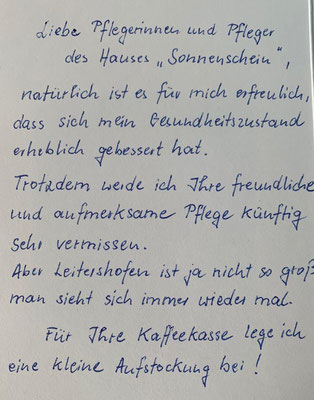 Liebe Pflegerinnen und Pfleger
des Hauses „Sonnenschein",
natürlich ist es für mich erfreulich,
dass sich mein Gesundheitszustand
erheblich gebessert hat.
Trotzdem werde ich Ihre freundliche
und aufmerksame Pflege künftig
sehr vermissen.
Aber Leitershofen ist ja nicht so groß
man sieht sich immer wieder mal.
Für Ihre Kaffeekasse lege ich
eine kleine Aufstockung bei!